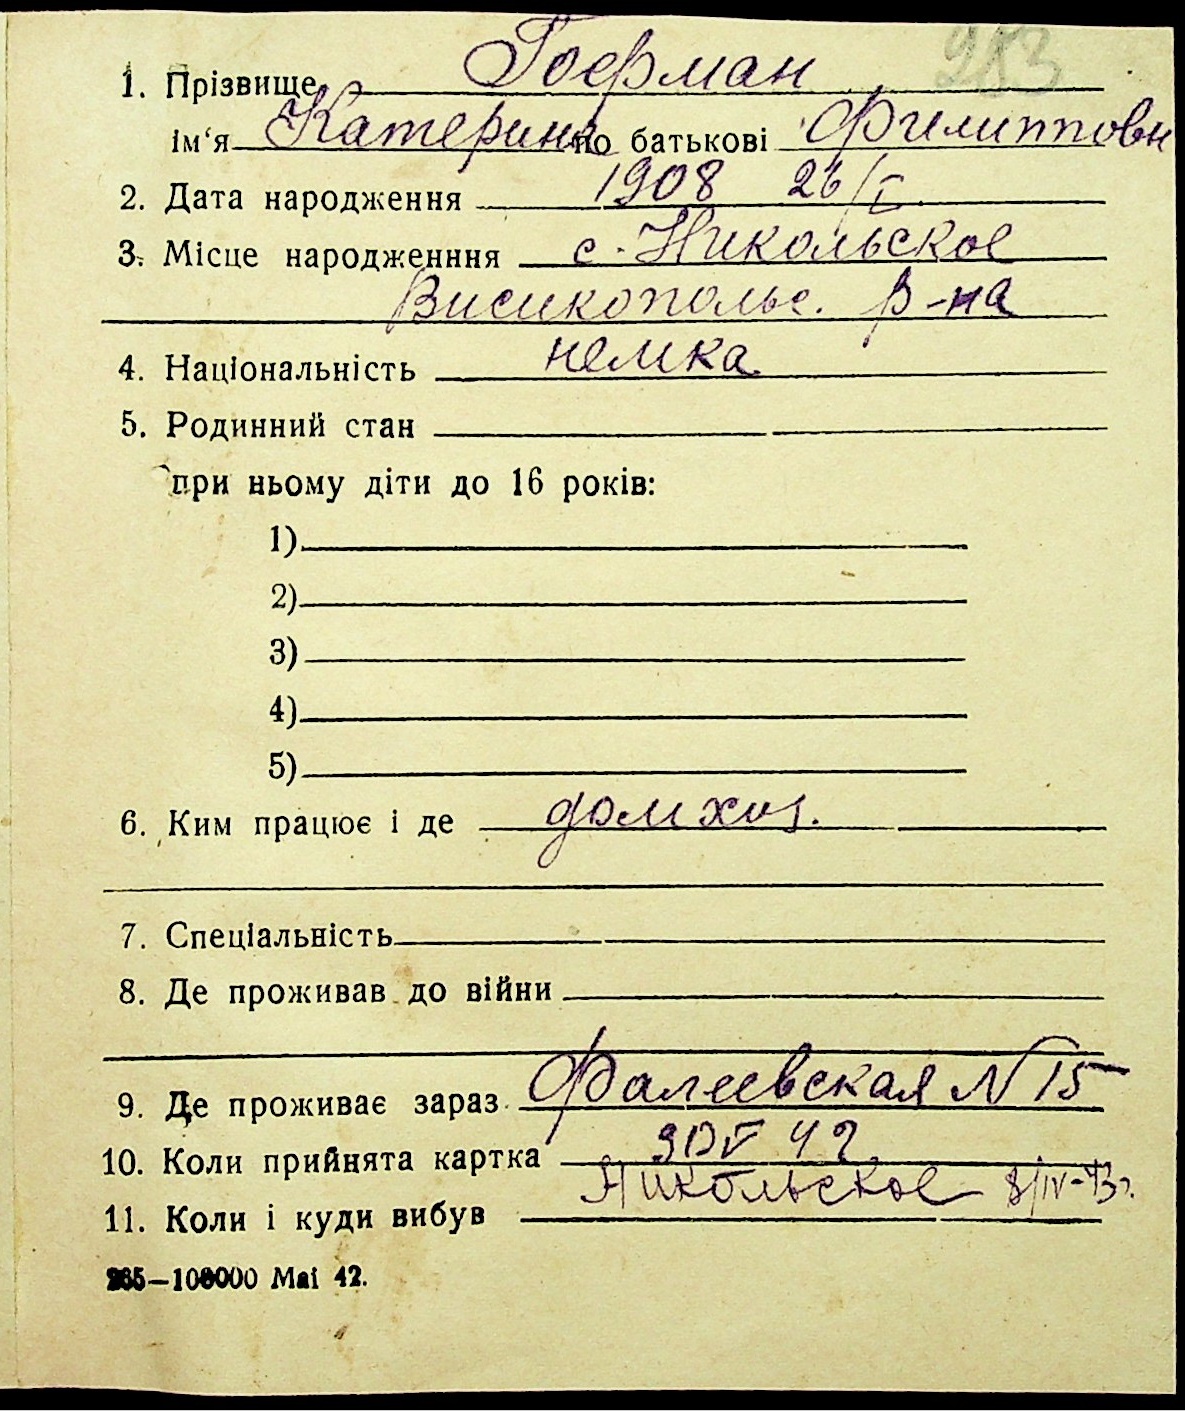 283
1. Прізвище Гофман
ім‘я Катерина по батькові Филипповн
2. Дата народження 1908 26/I
3. Місце народженння с. Никольское
Висикопольс. р-на
4. Національність немка
5. Родинний стан
при ньому діти до 16 років:
1)
2)
3)
4)
5)
6. Ким працює і де дом хоз.
7. Спеціальність
8. Де проживав до війни
9. Де проживає зараз Фалеевская N 15
10. Коли прийнята картка 42
11. Коли і куди вибув Никольское 8/IV-43 г.
265—108000 Mai 42.